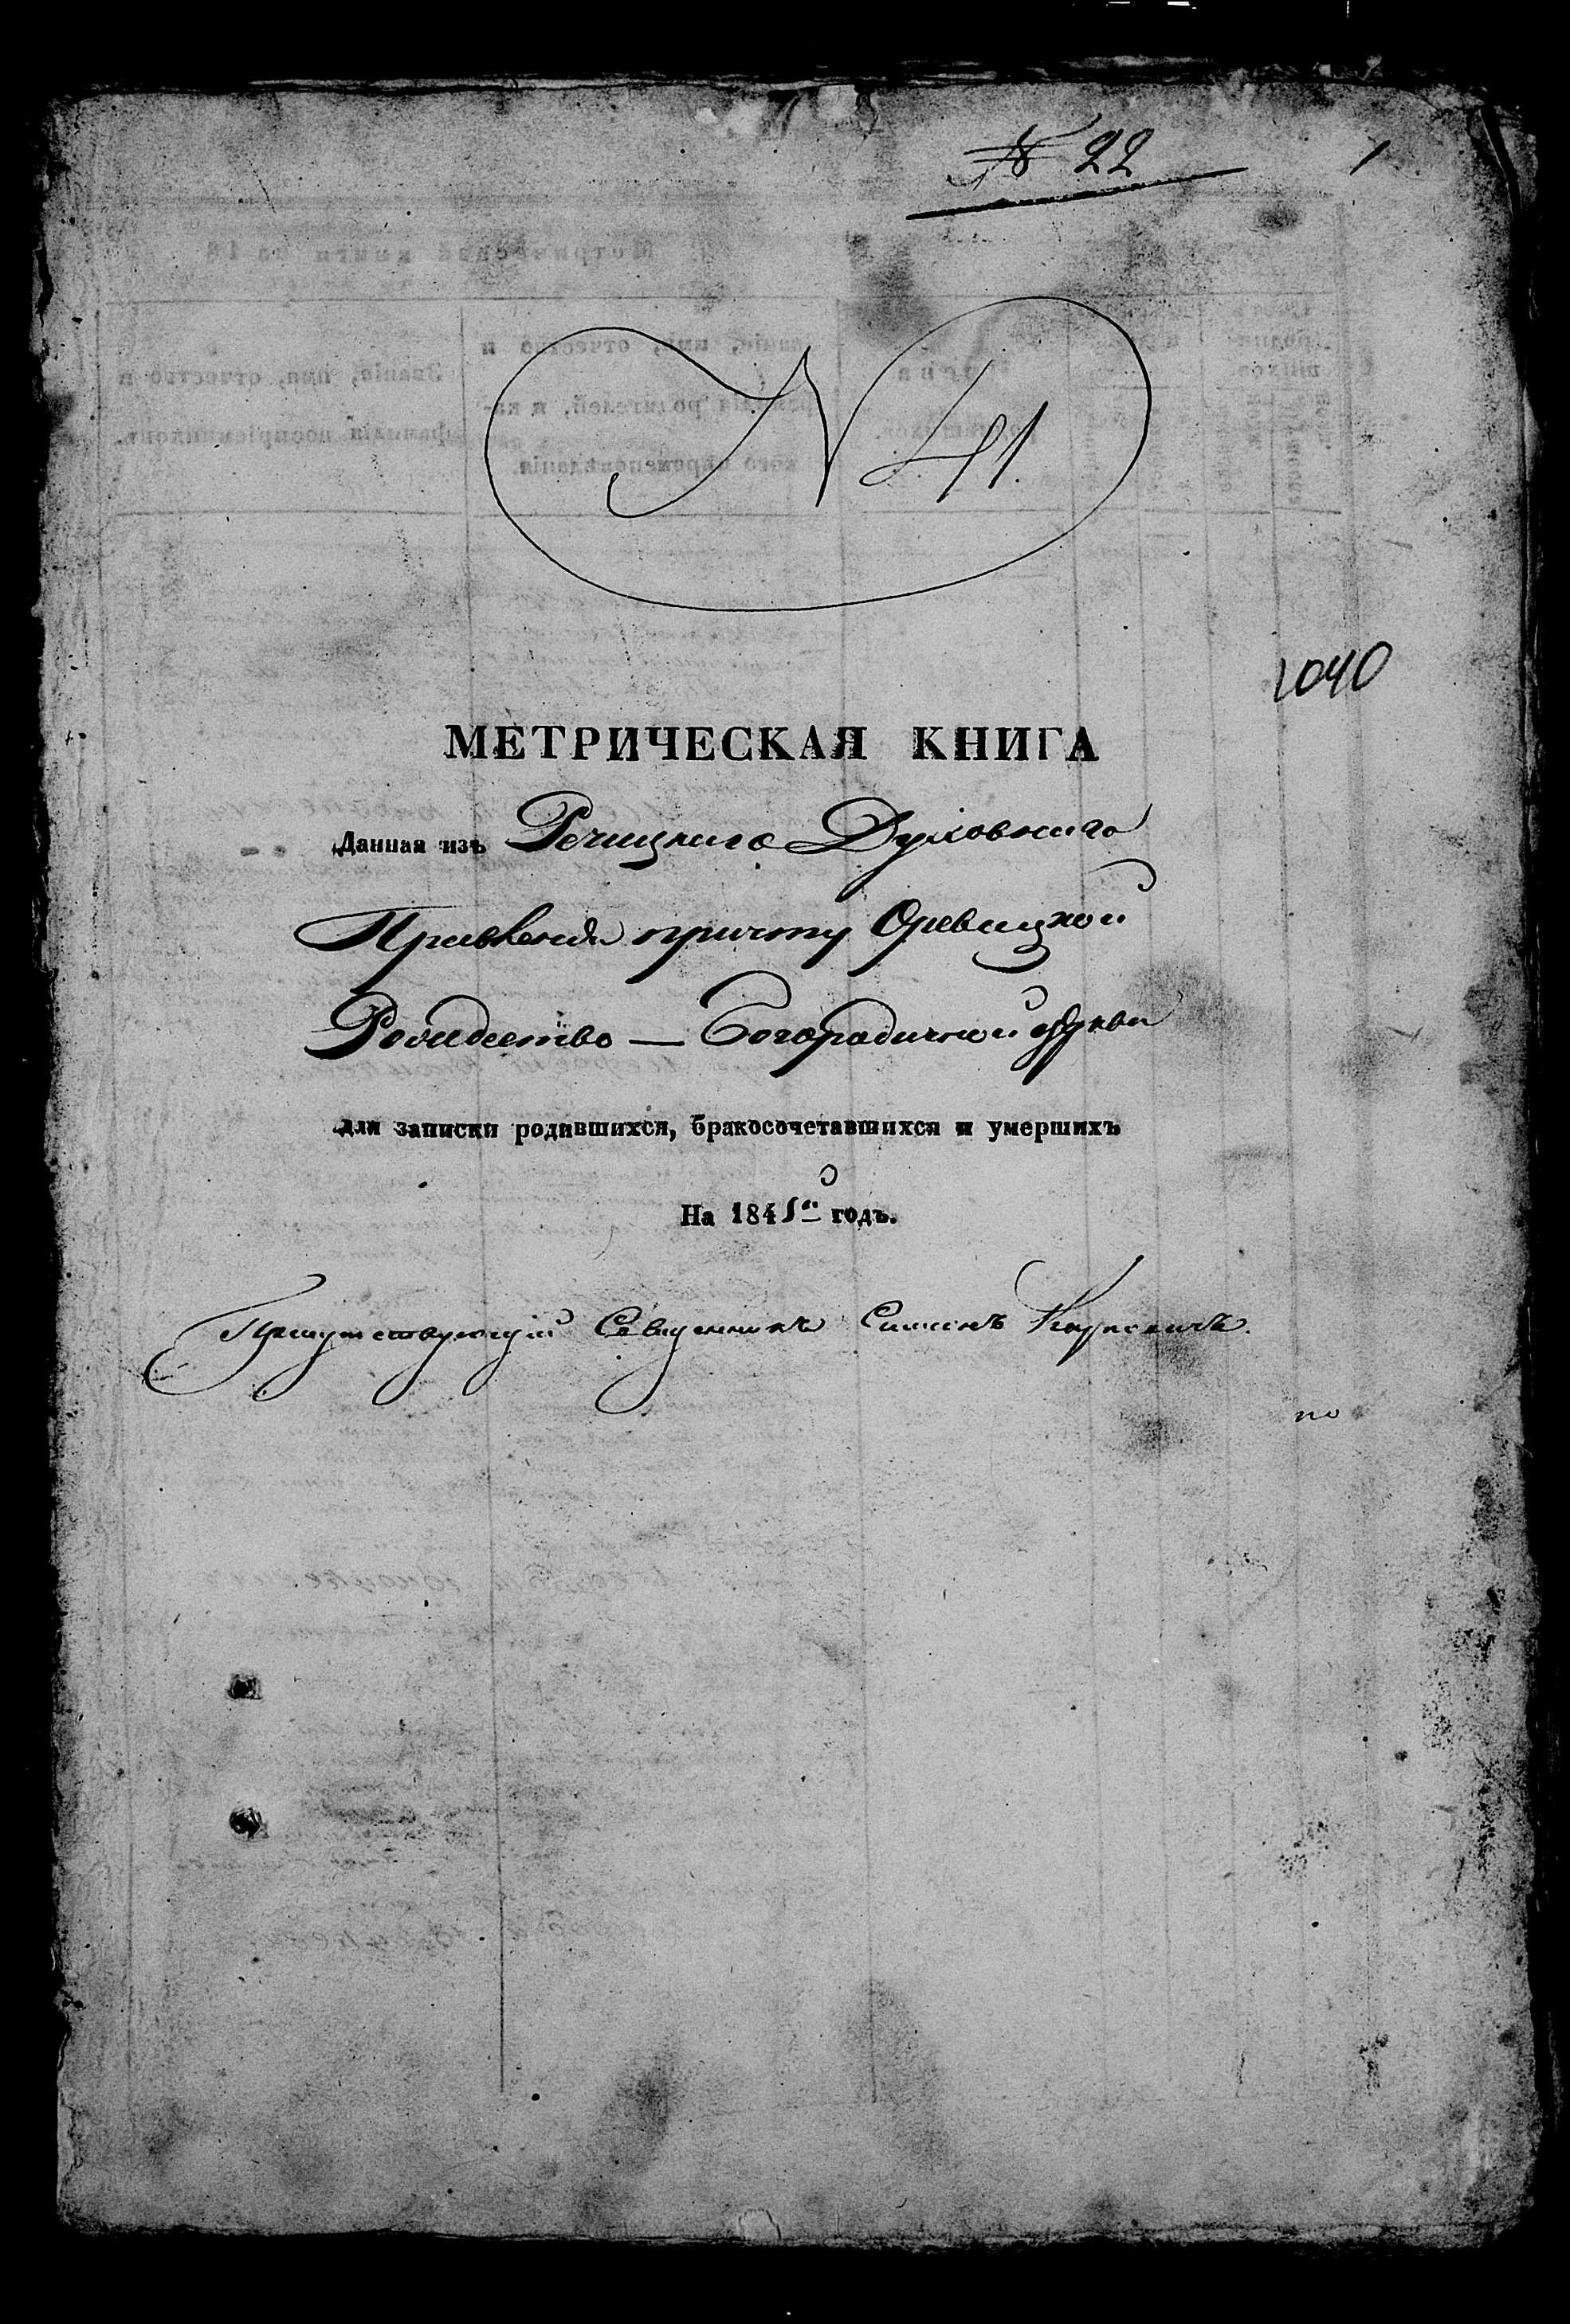 № 22
1
N 41.
1040
МЕТРИЧЕСКАЯ КНИГА
Данная изъ Речицкаго Духовнаго
Правленія причту Оревицкой
Рождество — Богородичной церкви
для записки родившихся, бракосочетавшихся и умершихъ
На 1845й годъ.
Присутствующій Священникъ Симонъ
по